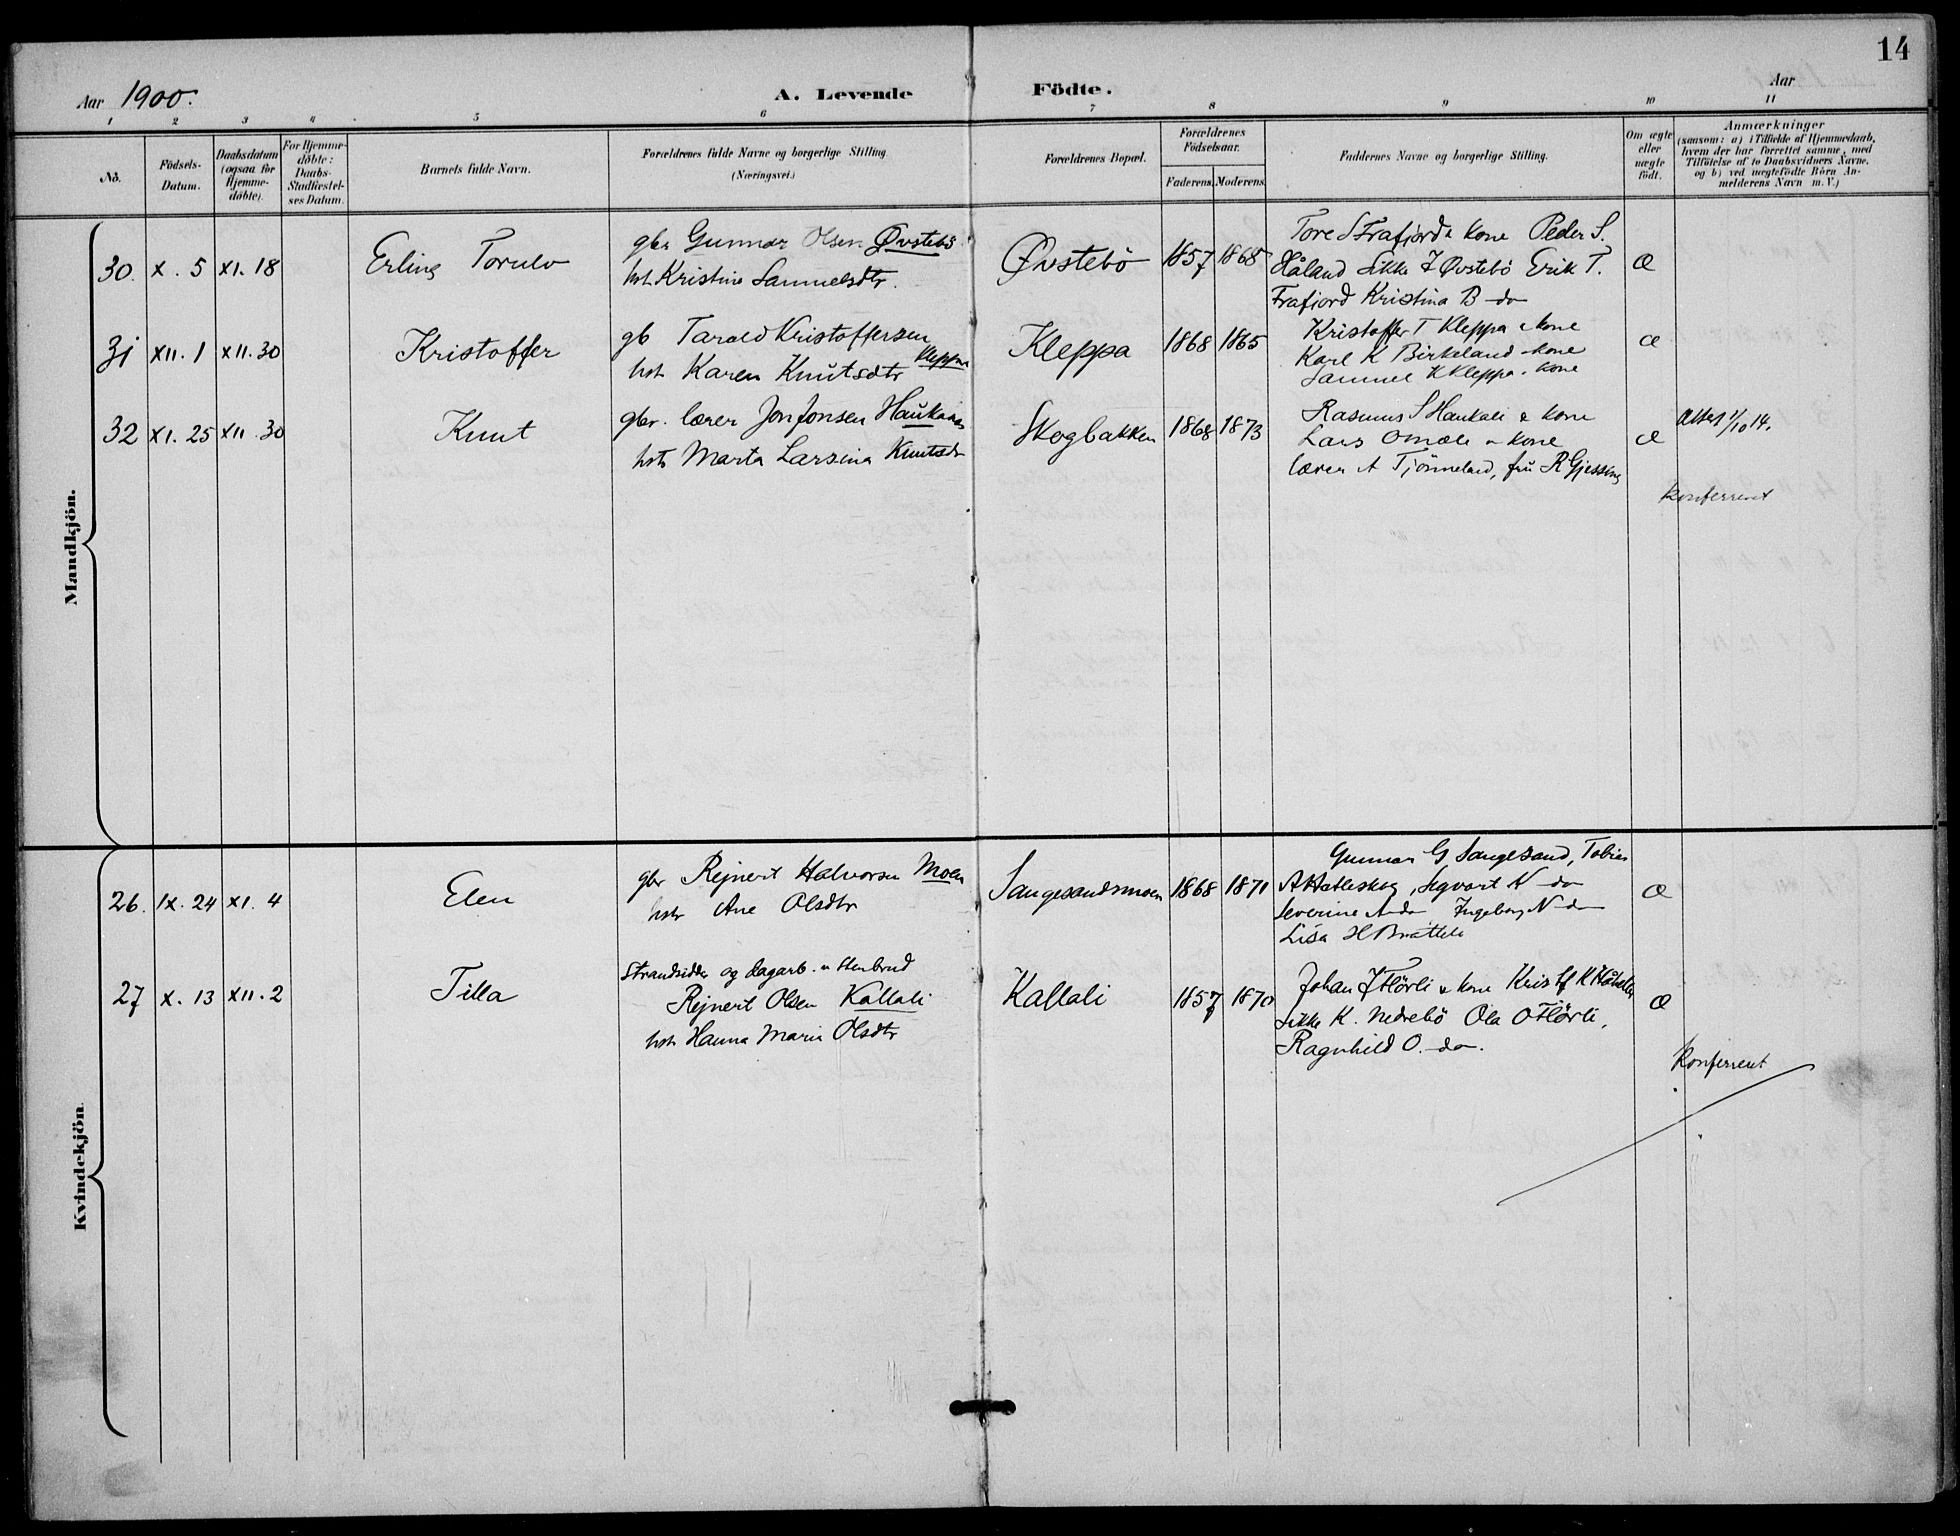 14
Aar 1900.
A. Levende Födte.
Aar
1 2 3 4 5 6 7 8 9 10 11
No.
Födsels-Datum.
Daabsdatum (ogsaa for Hjemme-döbte).
For Hjemme-döbte: Daabs-Stadfæstel-ses Datum.
Barnets fulde Navn.
Forældrenes fulde Navne og borgerlige Stilling.
(Næringsvei.)
Forældrenes Bopæl.
Forældrenes Födselsaar.
Faderens. Moderens.
Faddernes Navne og borgerlige Stilling.
Om ægte eller uægte födt.
Anmærkninger
(saasom: a) i Tilfælde af Hjemmedaab,
hvem der har forrettet samme, med
Tilföielse af to Daabsvidners Navne.
og b) ved uægtefödte Börn An-
melderens Navn m. V.)
Mandkjön.
30. X. 5 XI. 18
Erling Torulv
gbr Gunnar Olsen Øvstebö
hst Kristine Samuelsdtr.
Øvstebö
1857 1868
Tore S Frafjord & kone Peder S.
Håland Sikke T Øvstebö Erik T.
Frafjord Kristina B - do
Æ
31 XII. 1 XII. 30
Kristoffer
gb Tarald Kristoffersen
Kleppa
hst Karen Knutsdtr
Kleppa
1868 1865
Kristoffer T Kleppa & kone
Karl K Birkeland - kone
Samuel K Kleppa - kone
Æ
32 XI. 25 XII 30
Knut
gbr. lærer Jon Jonsen Haukali
hst Marta Larsina Knutsdr
Skogbakken
1868 1873
Rasmus S Haukali & kone
Lars Omdle & kone
lærer A Tjönneland, frü R Gjessing
Æ
Attest 1/10 14.
konferreret
Kvindekjön.
26. IX. 24 XI. 4
Elen
gbr Rejnert Halvorsen Moen
hst Ane Olsdtr
Sangesandsmoen
1868 1871
Gunnar G Sangesand, Tobias
A Hatleskog, Sigvart N - do
Severine A - do Ingeborg N - do
Lisa H Bratteli
Æ
27 X. 13 XII. 2
Tilla
Strandsidder og dagarb. i stenbrud
Rejnert Olsen Kallali
hst Hanna Marie Olsdtr
Kallali
1857 1870
Johan J Flörli & kone Krist K Håheller
Sikke K. Nedrebö Ola O Flörli,
Ragnhild O. - do.
Æ
Konferreret